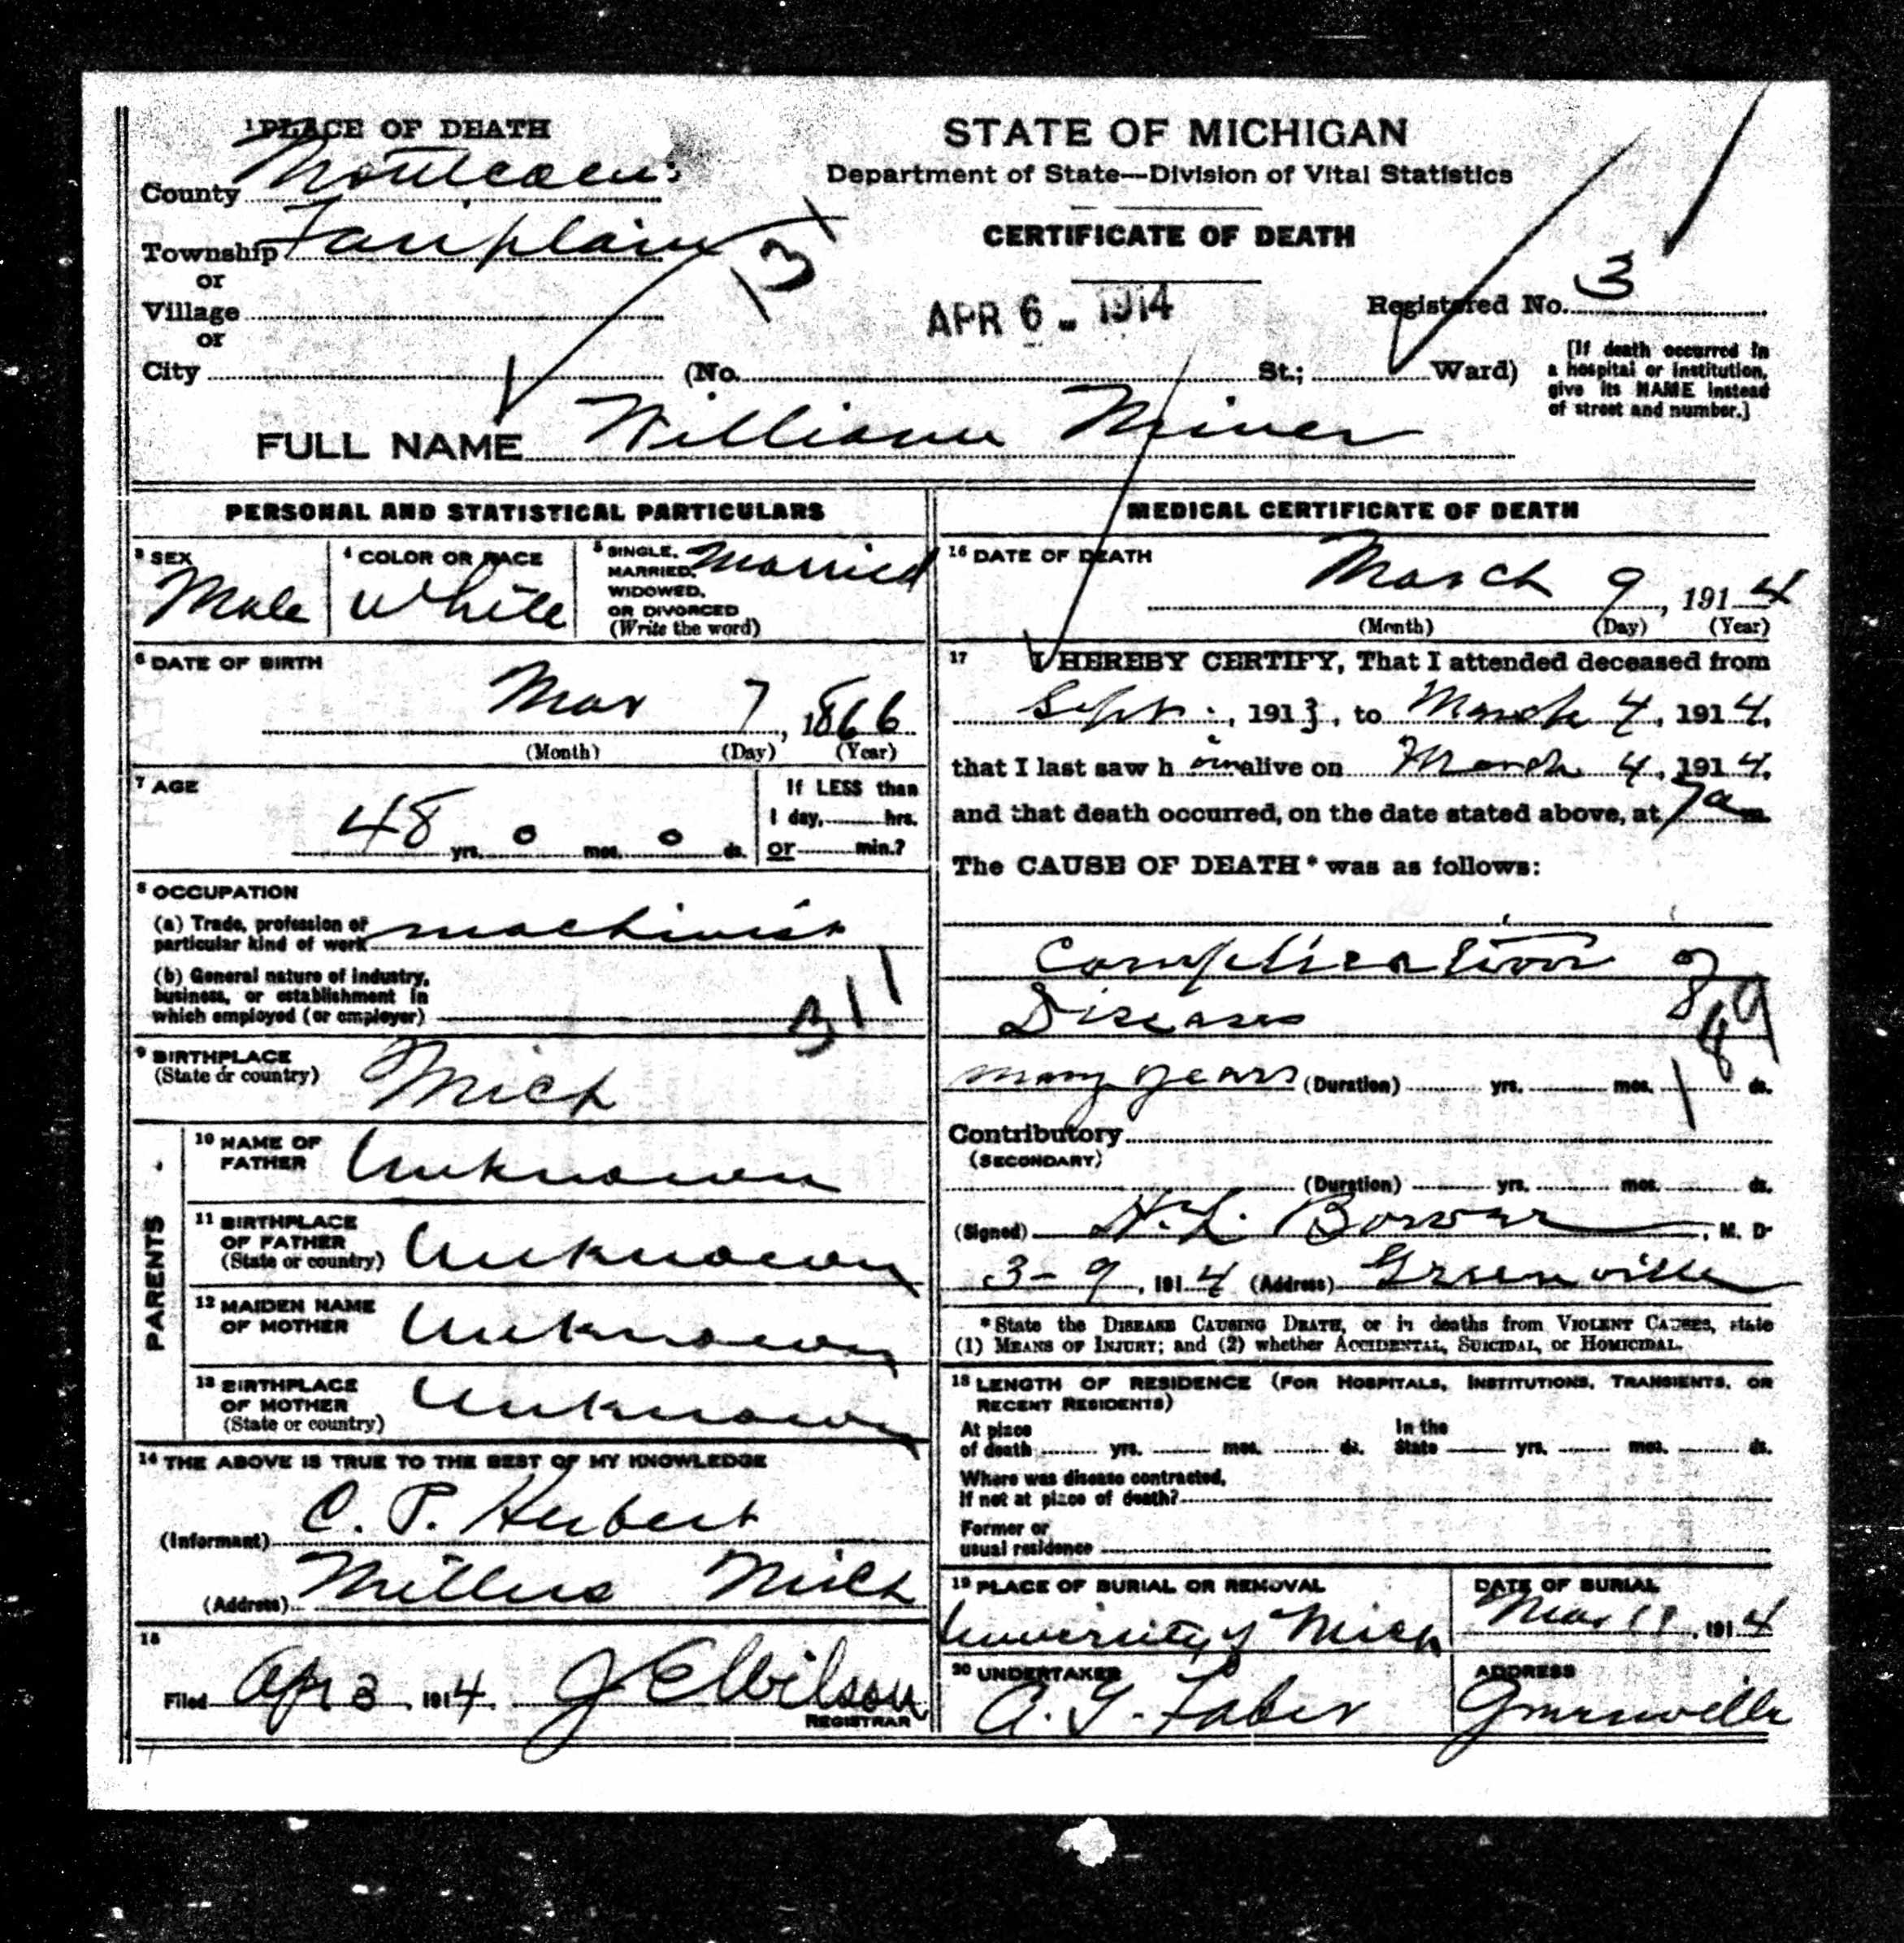 1 PLACE OF DEATH
County Montcalm
Township Fairplain
or
Village
or
City (No. St.; Ward)
13
STATE OF MICHIGAN
Department of State—Division of Vital Statistics
CERTIFICATE OF DEATH
APR 6 - 1914
Registered No. 3
[If death occurred in
a hospital or institution,
give its NAME instead
of street and number.]
FULL NAME William Miner
PERSONAL AND STATISTICAL PARTICULARS
3 SEX
Male
4 COLOR OR RACE
White
5 SINGLE,
MARRIED,
WIDOWED,
OR DIVORCED
(Write the word)
Married
6 DATE OF BIRTH
Mar 7, 1866
(Month) (Day) (Year)
7 AGE
48 yrs. 0 mos. 0 ds.
If LESS than
1 day, hrs.
or min.?
8 OCCUPATION
(a) Trade, profession or
particular kind of work machinist
(b) General nature of industry,
business, or establishment in
which employed (or employer)
311
9 BIRTHPLACE
(State or country)
Mich
PARENTS
10 NAME OF
FATHER
Unknown
11 BIRTHPLACE
OF FATHER
(State or country)
Unknown
12 MAIDEN NAME
OF MOTHER
Unknown
13 BIRTHPLACE
OF MOTHER
(State or country)
Unknown
14 THE ABOVE IS TRUE TO THE BEST OF MY KNOWLEDGE
(Informant) C. P. Herbert
(Address) Millers Mich
15
Filed Apr 3, 1914 J E Wilson
REGISTRAR
MEDICAL CERTIFICATE OF DEATH
16 DATE OF DEATH
March 9, 1914
(Month) (Day) (Year)
17 I HEREBY CERTIFY, That I attended deceased from
Sept., 1913, to March 4, 1914,
that I last saw h im alive on March 4, 1914,
and that death occurred, on the date stated above, at 7 a m.
The CAUSE OF DEATH* was as follows:
Complication of
Diseases
189
many years (Duration) yrs. mos. ds.
Contributory
(SECONDARY)
(Duration) yrs. mos. ds.
(Signed) H. L. Bower, M. D.
3-9, 1914 (Address) Greenville
*State the DISEASE CAUSING DEATH, or in deaths from VIOLENT CAUSES, state
(1) MEANS OF INJURY; and (2) whether ACCIDENTAL, SUICIDAL, or HOMICIDAL.
18 LENGTH OF RESIDENCE (FOR HOSPITALS, INSTITUTIONS, TRANSIENTS, OR
RECENT RESIDENTS)
At place
of death yrs. mos. ds.
In the
State yrs. mos. ds.
Where was disease contracted,
if not at place of death?
Former or
usual residence
19 PLACE OF BURIAL OR REMOVAL
University of Mich
DATE OF BURIAL
Mar 11, 1914
20 UNDERTAKER
A. G. Faber
ADDRESS
Greenville